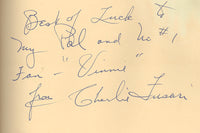 Best of Luck to
my Pal and No #1
Fan - "Vinnie"
from Charlie Fusari